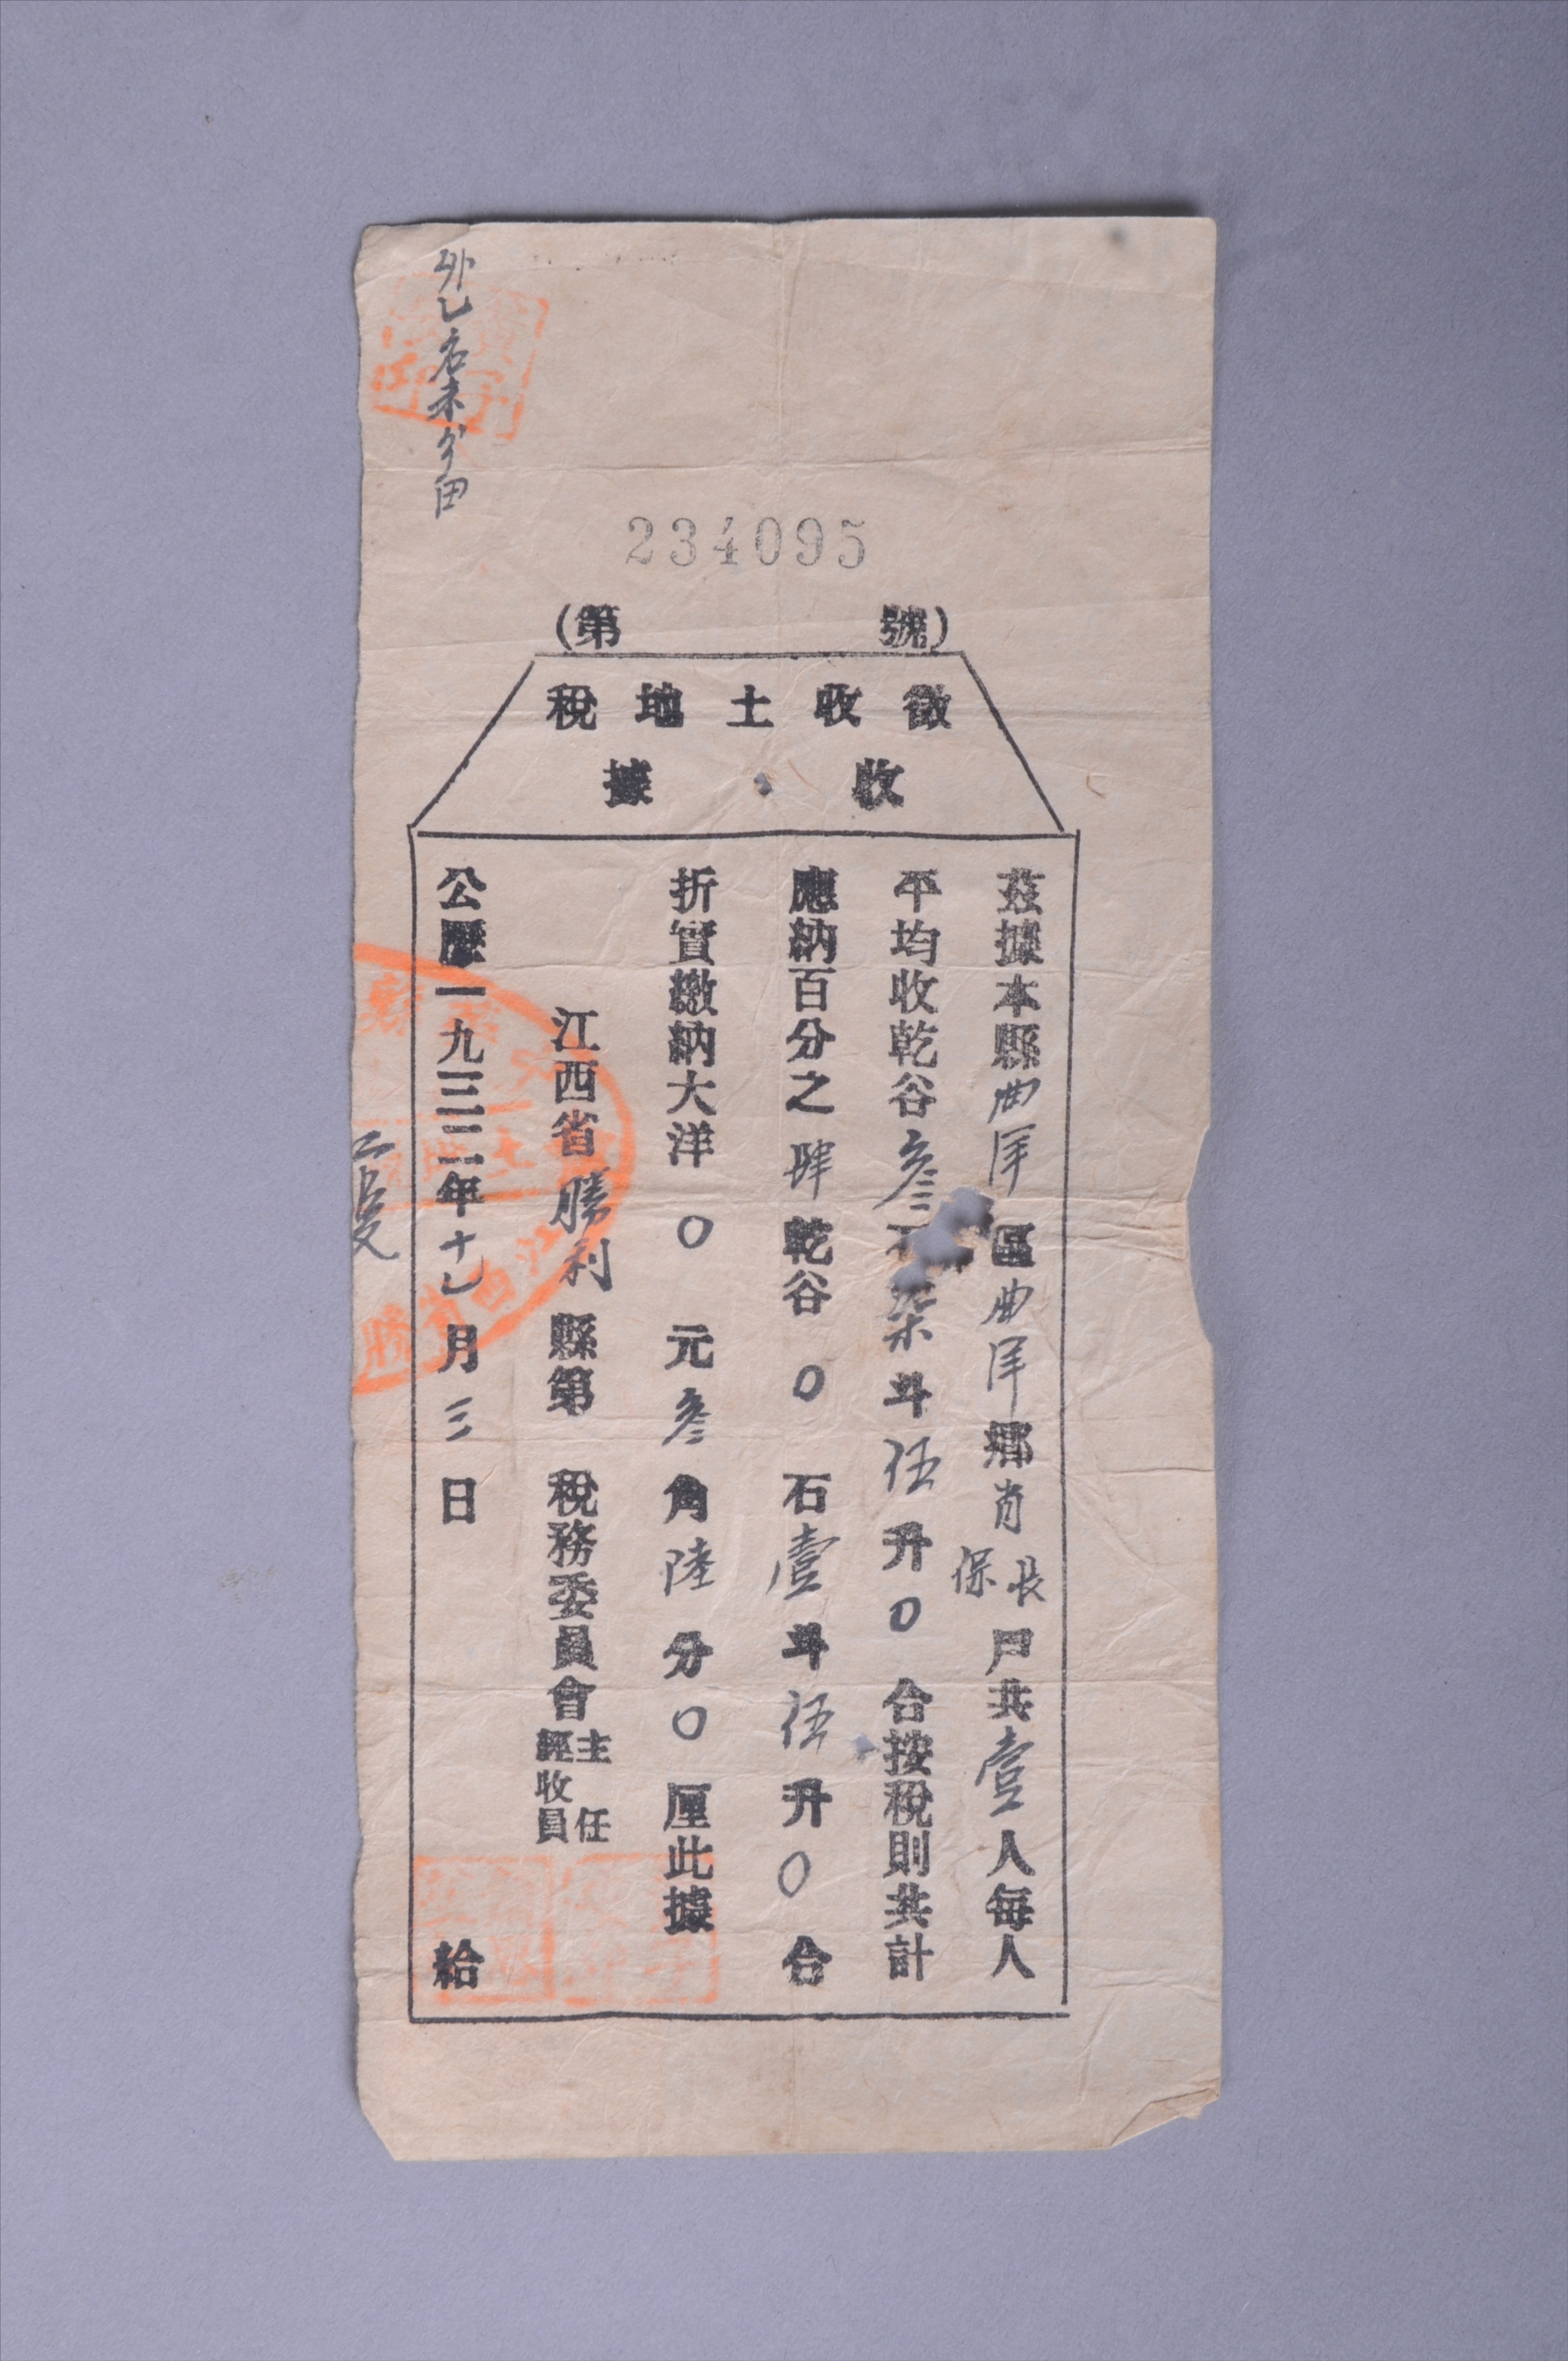 234095
(第 號)
徵收土地稅
收據
茲據本縣曲洋區曲洋鄉肖長保戶共壹人每人
平均收乾谷叁石柒斗伍升0合按稅則共計
應納百分之肆乾谷0石壹斗伍升0合
折實繳納大洋0元叁角陸分0厘此據
江西省勝利縣第 稅務委員會主任 經收員
公曆一九三二年十乚月三日 給
外乚名未分田